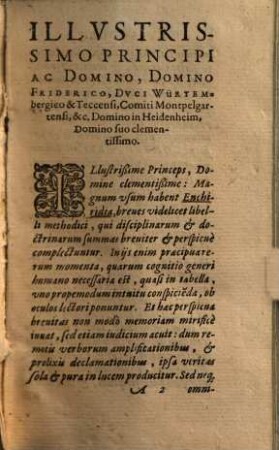 ILLVSTRIS-
SIMO PRINCIPI
AC DOMINO, DOMINO
FRIDERICO, DVCI WÜRTEM-
bergico & Teccensi, Comiti Montpelgar-
tensi, &c. Domino in Heidenheim,
Domino suo clemen-
tissimo.
ILlustrissime Princeps, Do-
mine clementissime: Ma-
gnum vsum habent Enchi-
ridia, breues videlicet libel-
li methodici, qui disciplinarum &do-
ctrinarum summas breuiter & perspicuè
complectuntur. In ijs enim præcipuæ re-
rum momenta, quarum cognitio generi
humano necessaria est, quasi in tabella,
vno propemodum intuitu conspiciẽda, ob
oculos lectori ponuntur. Et hæc perspicua
breuitas non modò memoriam mirificè
iuuat, sed etiam iudicium acuit: dum re-
motis verborum amplificationibus, &
prolixis declamationibus, ipsa veritas
sola & pura in lucem producitur. Sed neq̃
A 2 omni-